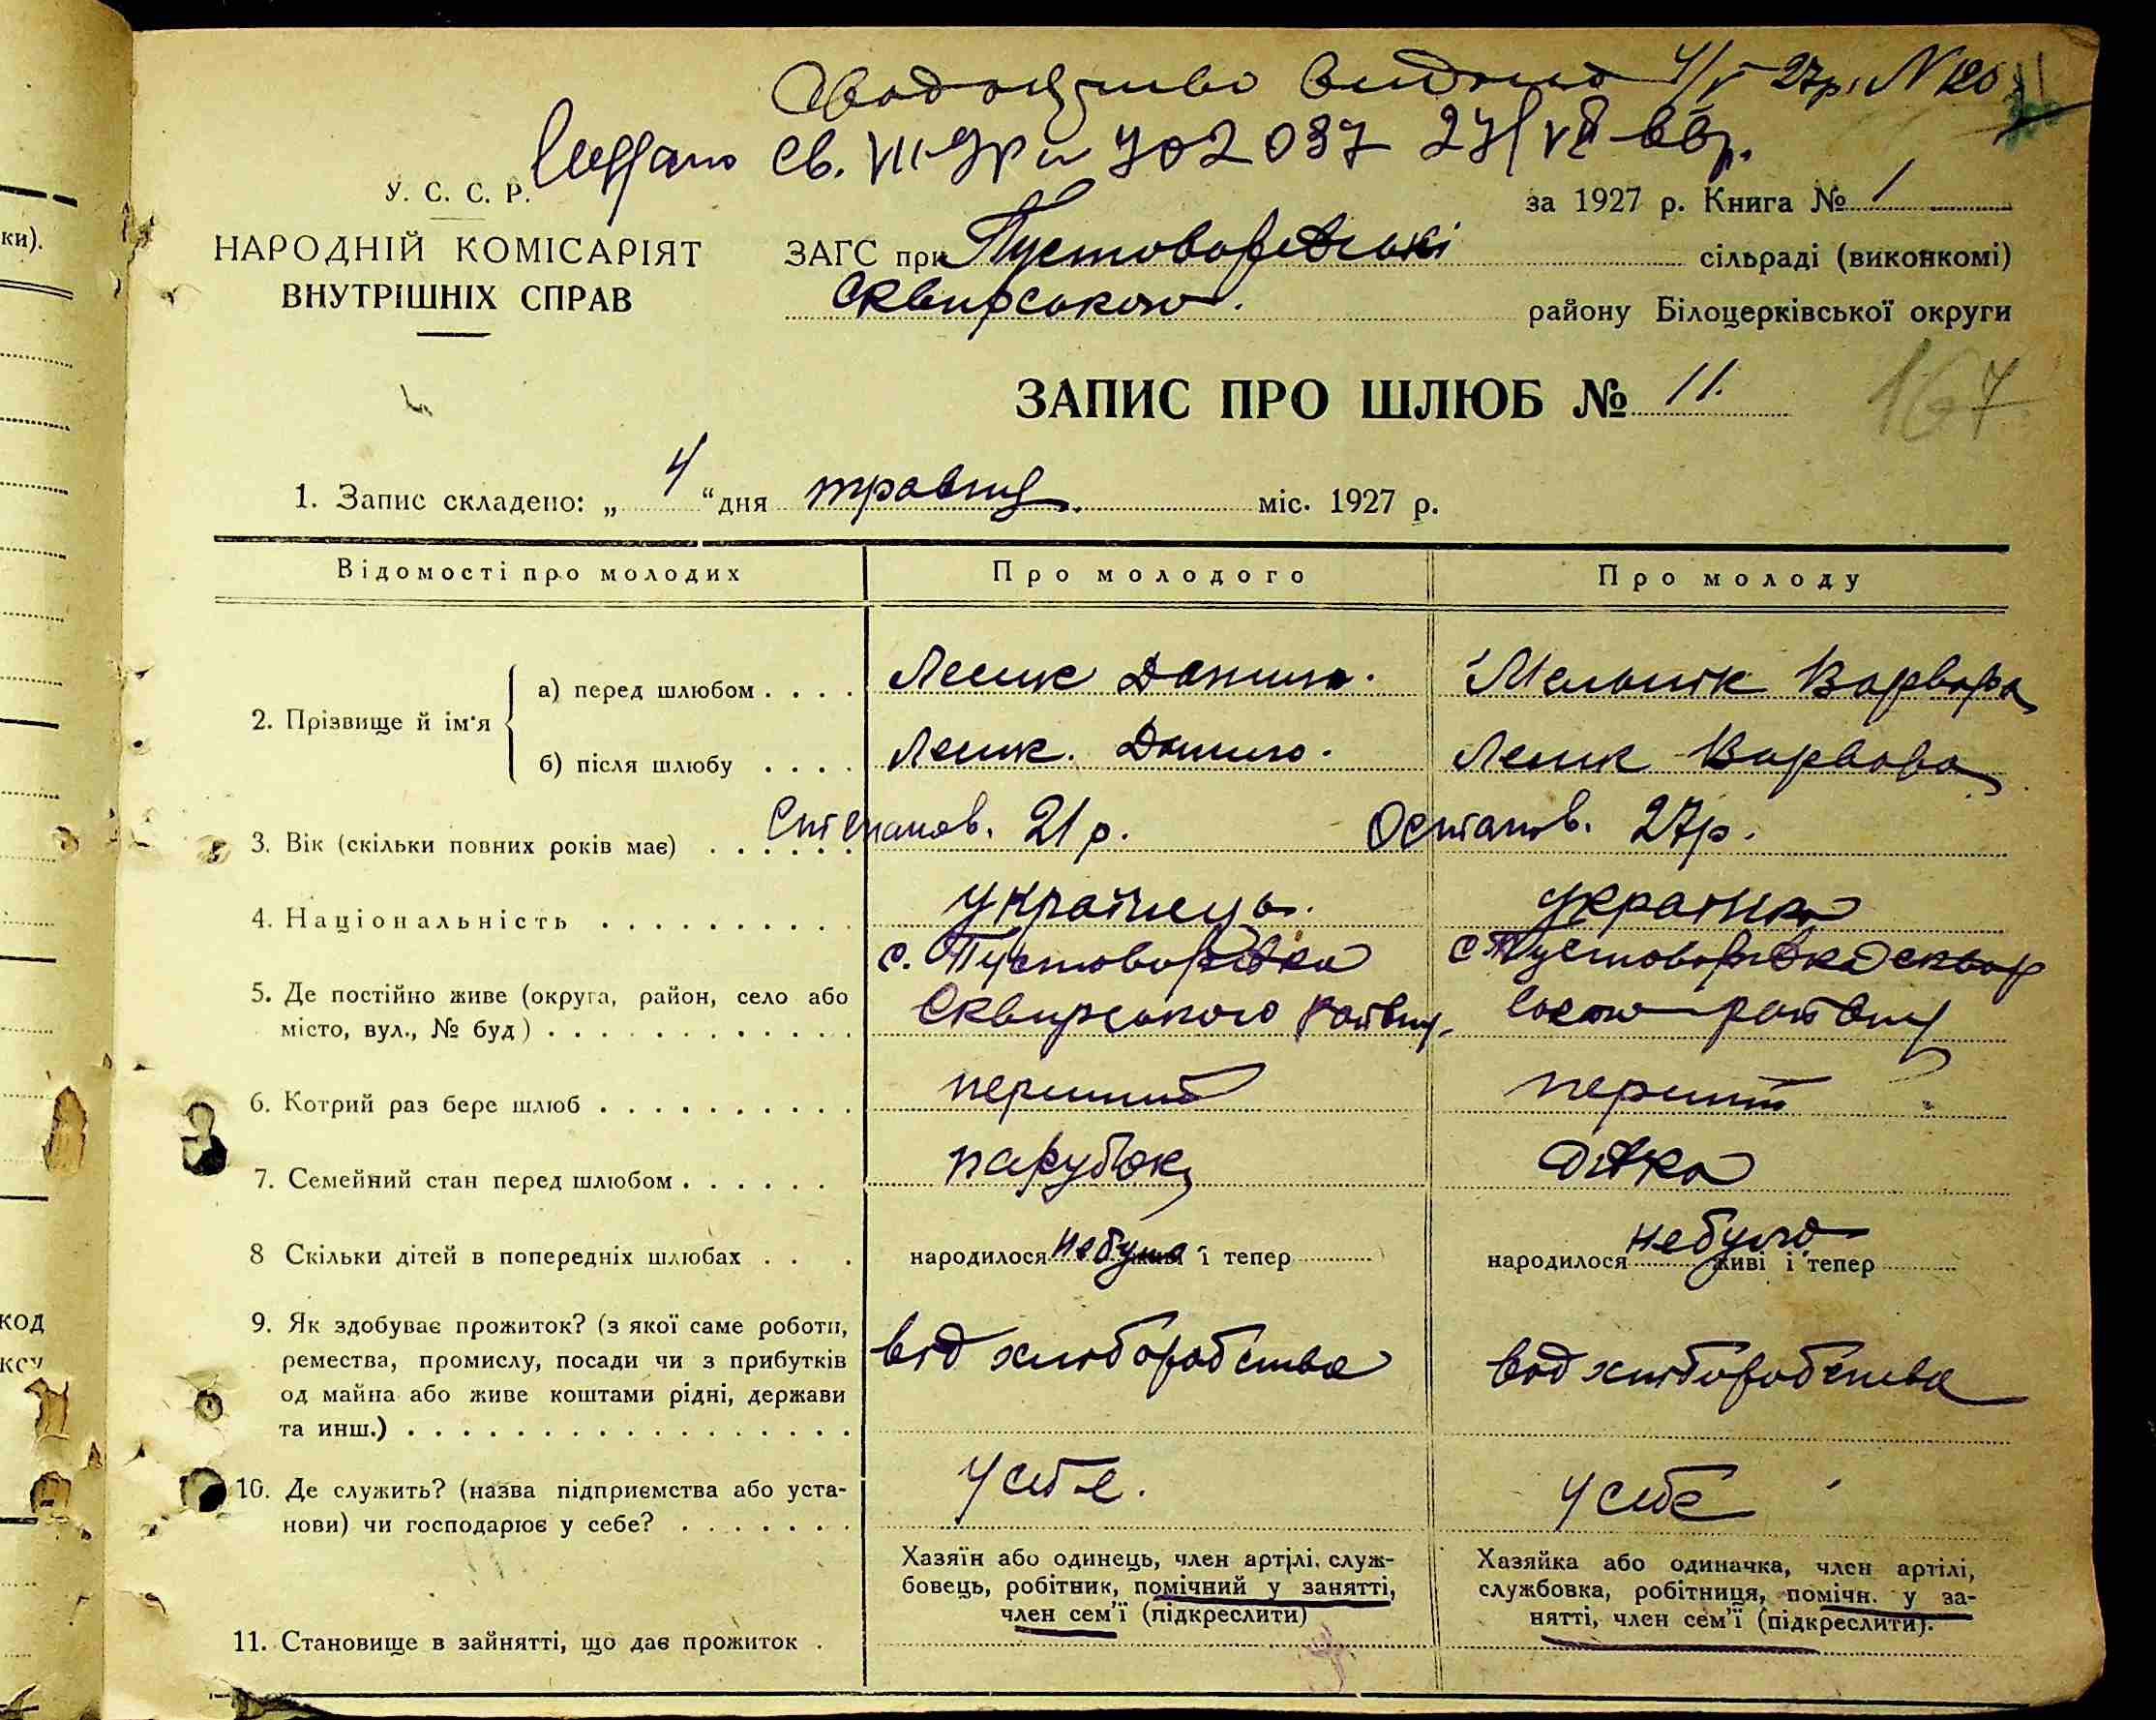 видано 4/V 27р. N 120
св. VII-
У. С. С. Р.
за 1927 р. Книга № 1
НАРОДНІЙ КОМІСАРІЯТ
ВНУТРІШНІХ СПРАВ
ЗАГС при Пустоварівські сільраді (виконкомі)
Сквирського. району Білоцерківської округи
ЗАПИС ПРО ШЛЮБ № 11.
167
1. Запис складено: „ 4 “ дня травня. міс. 1927 р.
Відомості про молодих
Про молодого
Про молоду
2. Прізвище й ім'я
а) перед шлюбом . . . . Лешик Данило. Мельник Варвара
б) після шлюбу . . . . Лешик. Данило. Лешик Варвара
3. Вік (скільки повних років має) . . . . . . Степанов. 21 р. Остапов. 27р.
4. Національність . . . . . . . . . . українець. українка
5. Де постійно живе (округа, район, село або
місто, вул., № буд) . . . . . . . . . . . .
с. Пустоварівка
Сквирського району.
с Пустоварівка Сквир
ського району
6. Котрий раз бере шлюб . . . . . . . . . . перший перший
7. Семейний стан перед шлюбом . . . . . . парубок дівка
8 Скільки дітей в попередніх шлюбах . . . народилося небуло живі і тепер народилося небуло живі і тепер
9. Як здобуває прожиток? (з якої саме роботи,
ремества, промислу, посади чи з прибутків
од майна або живе коштами рідні, держави
та инш.) . . . . . . . . . . . . . . . . .
від хліборобства
від хліборобства
10. Де служить? (назва підприємства або уста-
нови) чи господарює у себе? . . . . . . .
у себе.
у себе
11. Становище в зайнятті, що дає прожиток .
Хазяїн або одинець, член артілі, служ-
бовець, робітник, помічний у занятті,
член сем'ї (підкреслити)
Хазяйка або одиначка, член артілі,
службовка, робітниця, помічн. у за-
нятті, член сем'ї (підкреслити).
ки).
код